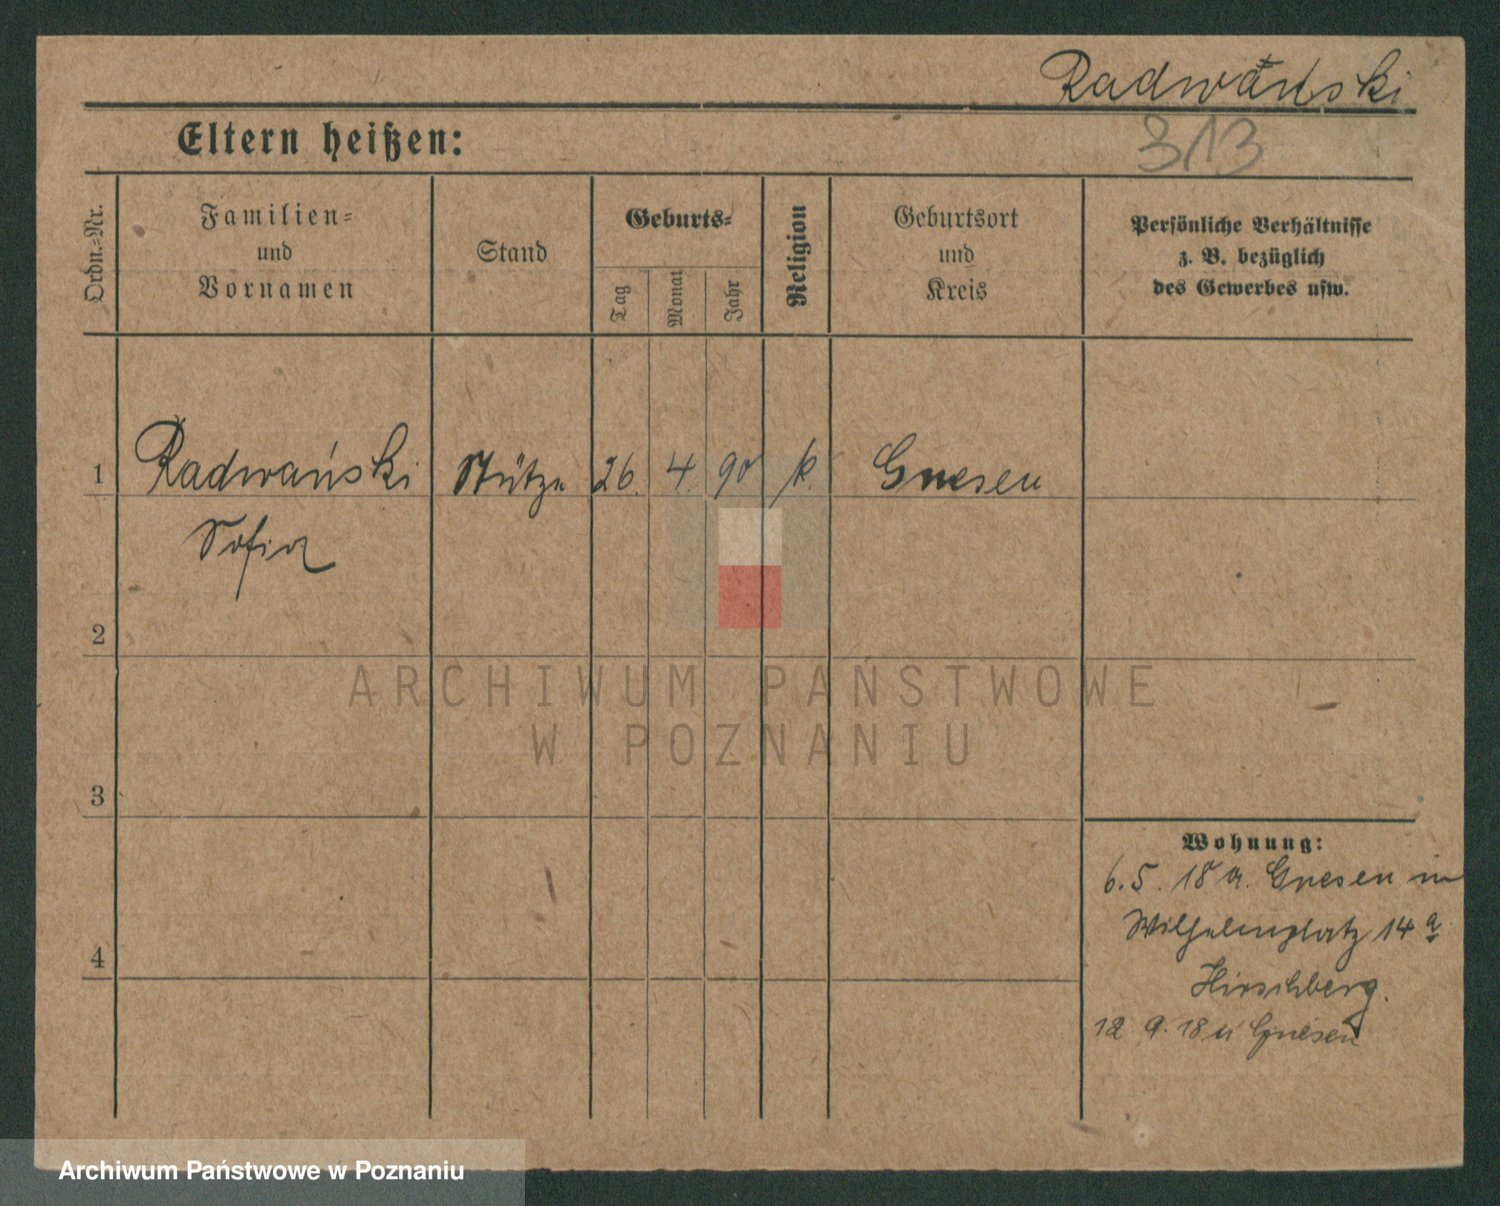 Radwański
313
Eltern heißen:
Ordn.-Nr.
Familien-
und
Vornamen
Stand
Geburts-
Tag
Monat
Jahr
Religion
Geburtsort
und
Kreis
Persönliche Verhältnisse
z. B. bezüglich
des Gewerbes usw.
1 Radwański Stütze 26. 4. 90 k. Gnesen
Sofia
2
3
4
Wohnung:
6. 5. 18 a. Gnesen in
Wilhelmplatz 14 a
Hirschberg.
12 9. 18 n Gnesen
ARCHIWUM PAŃSTWOWE
W POZNANIU
Archiwum Państwowe w Poznaniu